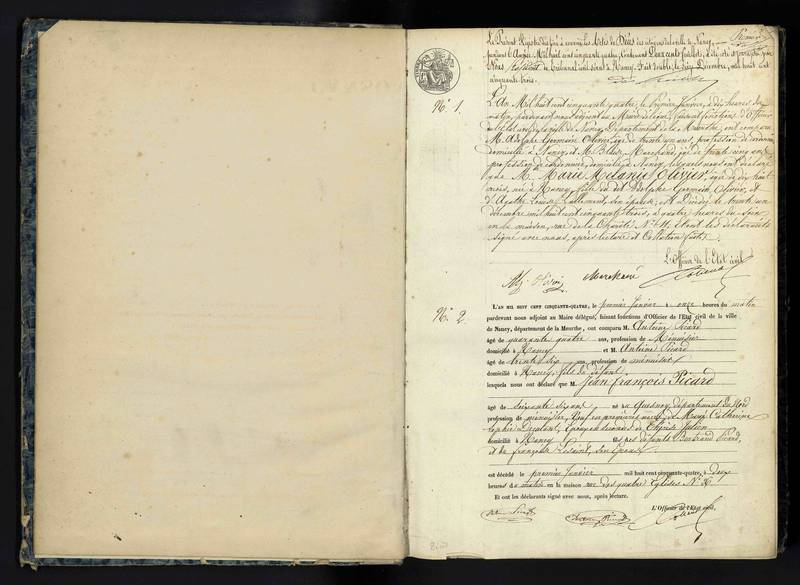 Le Présent Registre destiné à recevoir les Actes de Décès des citoyens de la ville de Nancy,
pendant l'Année Mil huit cent cinquante quatre, contenant Deux cents feuillets, a été coté et paraphé par
Nous Président du Tribunal civil séant à Nancy. Fait double, le dix Décembre, mil huit cent
cinquante trois.
N.º 1.
L'An Mil huit cent cinquante quatre, le premier Janvier, à dix heures du
matin, pardevant nous adjoint au Maire délégué, faisant fonctions d'Officier
de l'état civil de la ville de Nancy, Département de la Meurthe, ont comparu
M. Adolphe Germain Olivier, âgé de trente un ans, profession de
domicilié à Nancy, et M. Marchand, âgé de trente cinq ans,
profession de cordonnier, domicilié à Nancy, lesquels nous ont déclaré
que Mlle Marie Mélanie Olivier, âgée de dix huit
mois, née à Nancy, fille du dit Adolphe Germain Olivier, et
d'Agathe Louise Lallement, son épouse, est décédée le trente un
décembre mil huit cent cinquante trois, à quatre heures du soir
en la maison, rue de la Charité N.º 11, et ont les déclarants
signé avec nous, après lecture et Collation faites.
L'Officier de l'Etat civil
Marchand
N.º 2.
L'AN MIL HUIT CENT CINQUANTE-QUATRE, le premier Janvier à onze heures du matin
pardevant nous adjoint au Maire délégué, faisant fonctions d'Officier de l'Etat civil de la ville
de Nancy, département de la Meurthe, ont comparu M. Antoine Picard
âgé de quarante quatre ans, profession de Menuisier
domicilié à Nancy et M. Antoine Picard
âgé de trente six ans, profession de menuisier
domicilié à Nancy, fils du défunt
lesquels nous ont déclaré que M. Jean François Picard
âgé de soixante six ans né à Quesnoy département du Nord
profession de menuisier, Veuf en premières noces de Marie Catherine
Sophie Époux en secondes de Thérèse
domicilié à Nancy fils des défunts Bertrand Picard,
et de Françoise son épouse
est décédé le premier Janvier mil huit cent cinquante-quatre, à deux
heures du matin en la maison rue des quatre Eglises N.º
Et ont les déclarants signé avec nous, après lecture.
L'Officier de l'Etat civil,